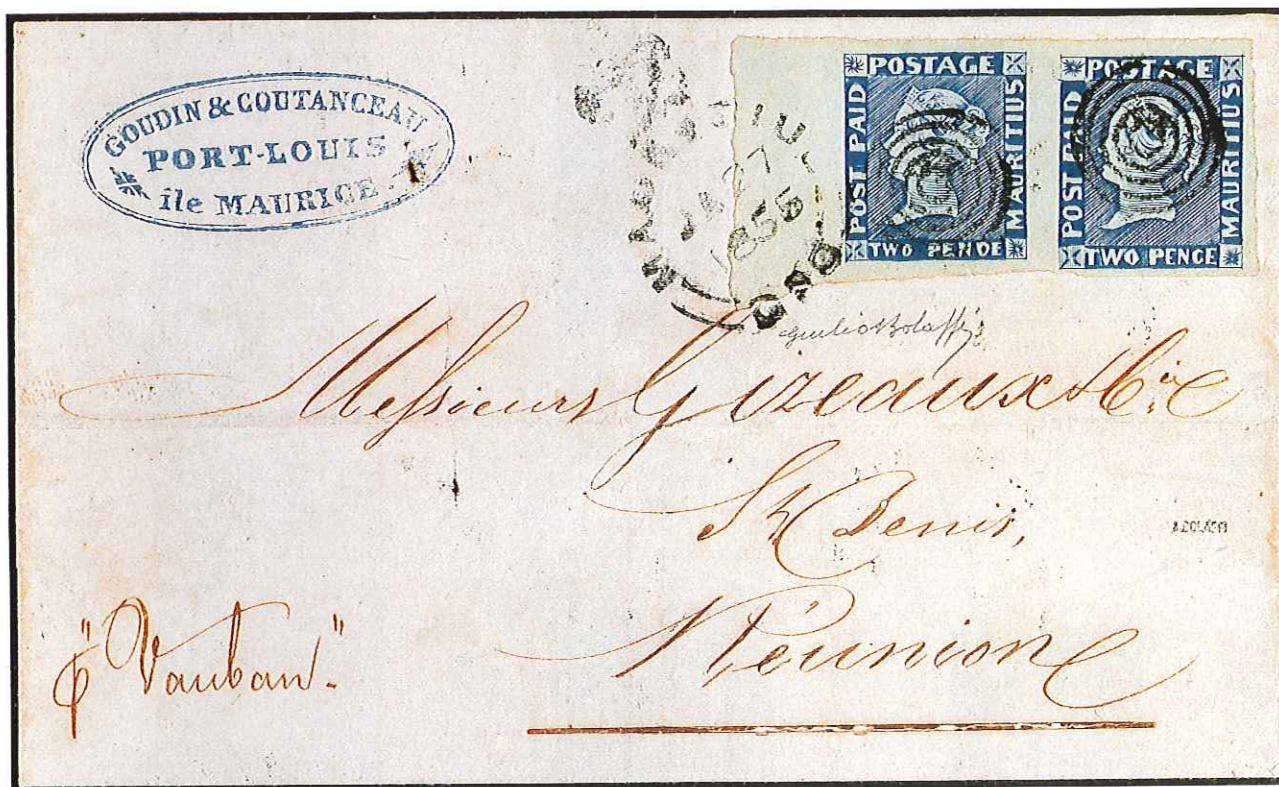 GOUDIN & COUTANCEAU
PORT-LOUIS
île MAURICE
POSTAGE
POST PAID
MAURITIUS
TWO PENOE
POSTAGE
POST PAID
MAURITIUS
TWO PENCE
27
1855
Giulio Bolaffi
Messieurs Gizeaux & Cie
St Denis,
Réunion
"Vauban"